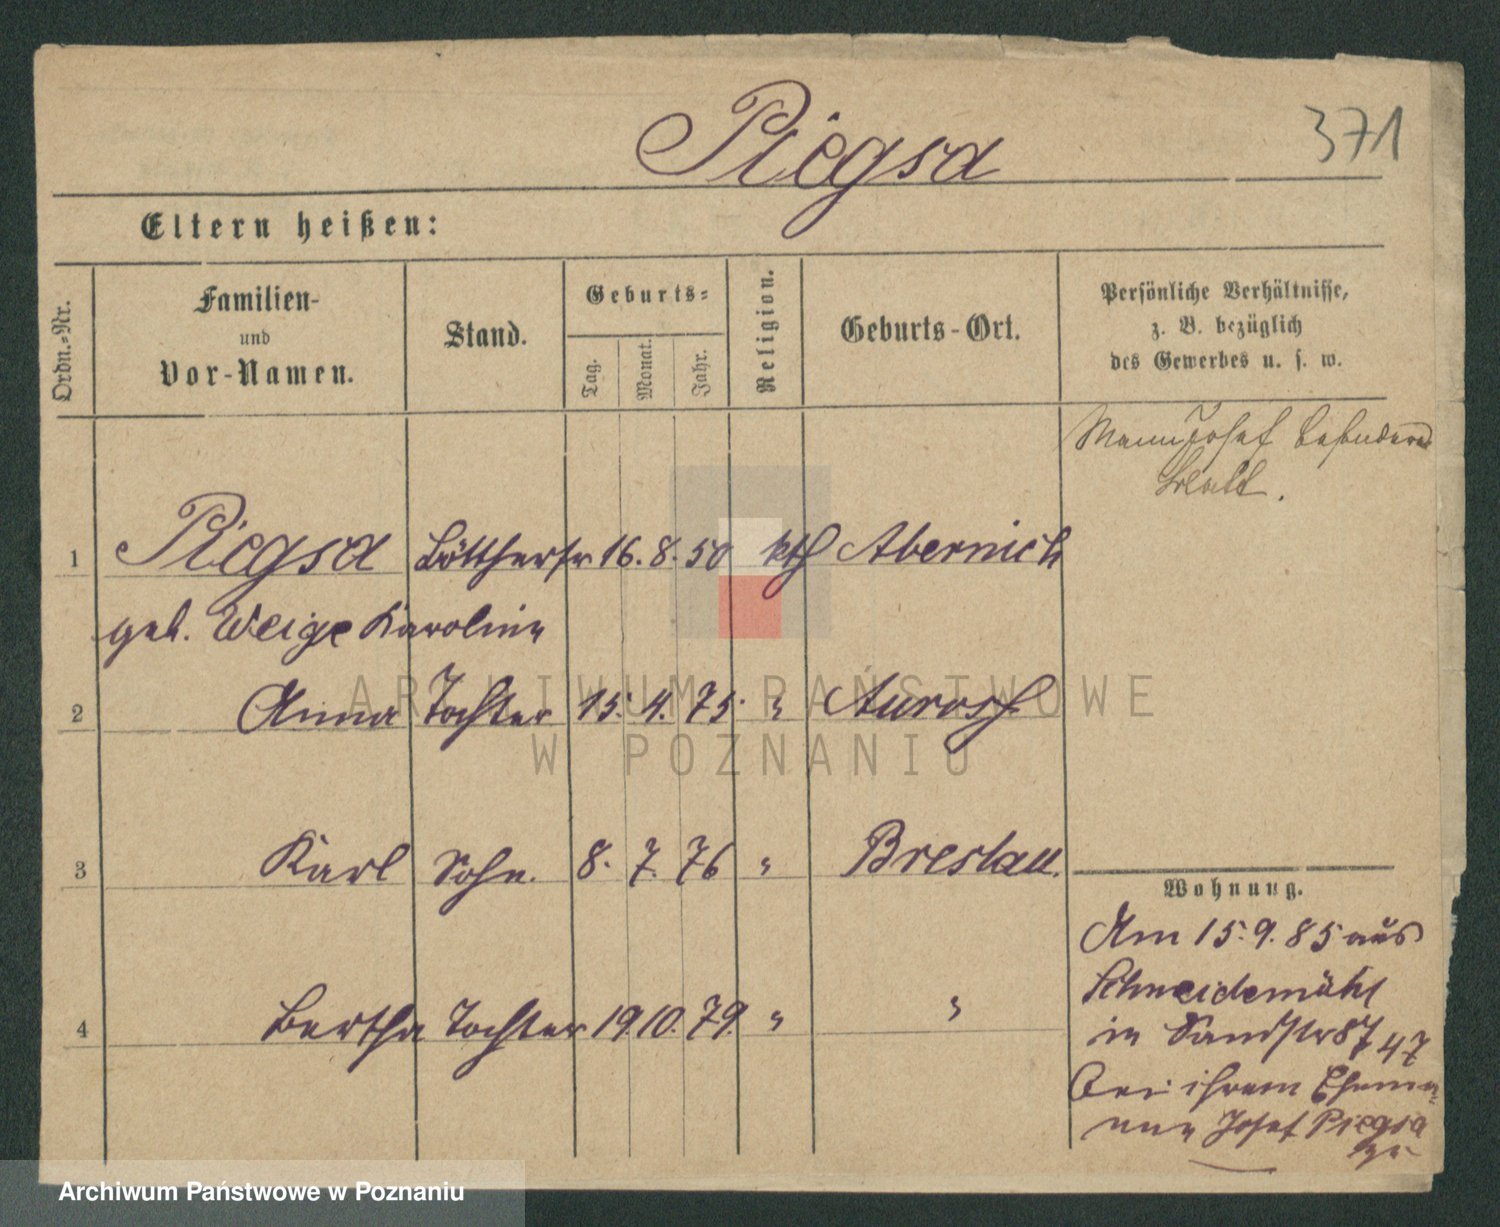 Piegsa
371
Eltern heißen:
Ordn.-Nr.
Familien-
und
Vor-Namen.
Stand.
Geburts-
Tag.
Monat.
Jahr.
Religion.
Geburts-Ort.
Persönliche Verhältnisse,
z. B. bezüglich
des Gewerbes u. s. w.
Mann Josef besondres
Blatt.
1 Piegsa Böttcherfr 16. 8. 50 kth Abernich
geb. Weige Karoline
2 Anna Tochter 15. 4. 75. " Aurosch
3 Karl Sohn. 8. 7. 76 " Breslau.
4 Bertha Tochter 19. 10. 79. " "
Wohnung.
Am 15. 9. 85 aus
Schneidemühl
in Sandstr 8
bei ihrem Ehema-
nne Josef Piegsa
ARCHIWUM PAŃSTWOWE
W POZNANIU
Archiwum Państwowe w Poznaniu